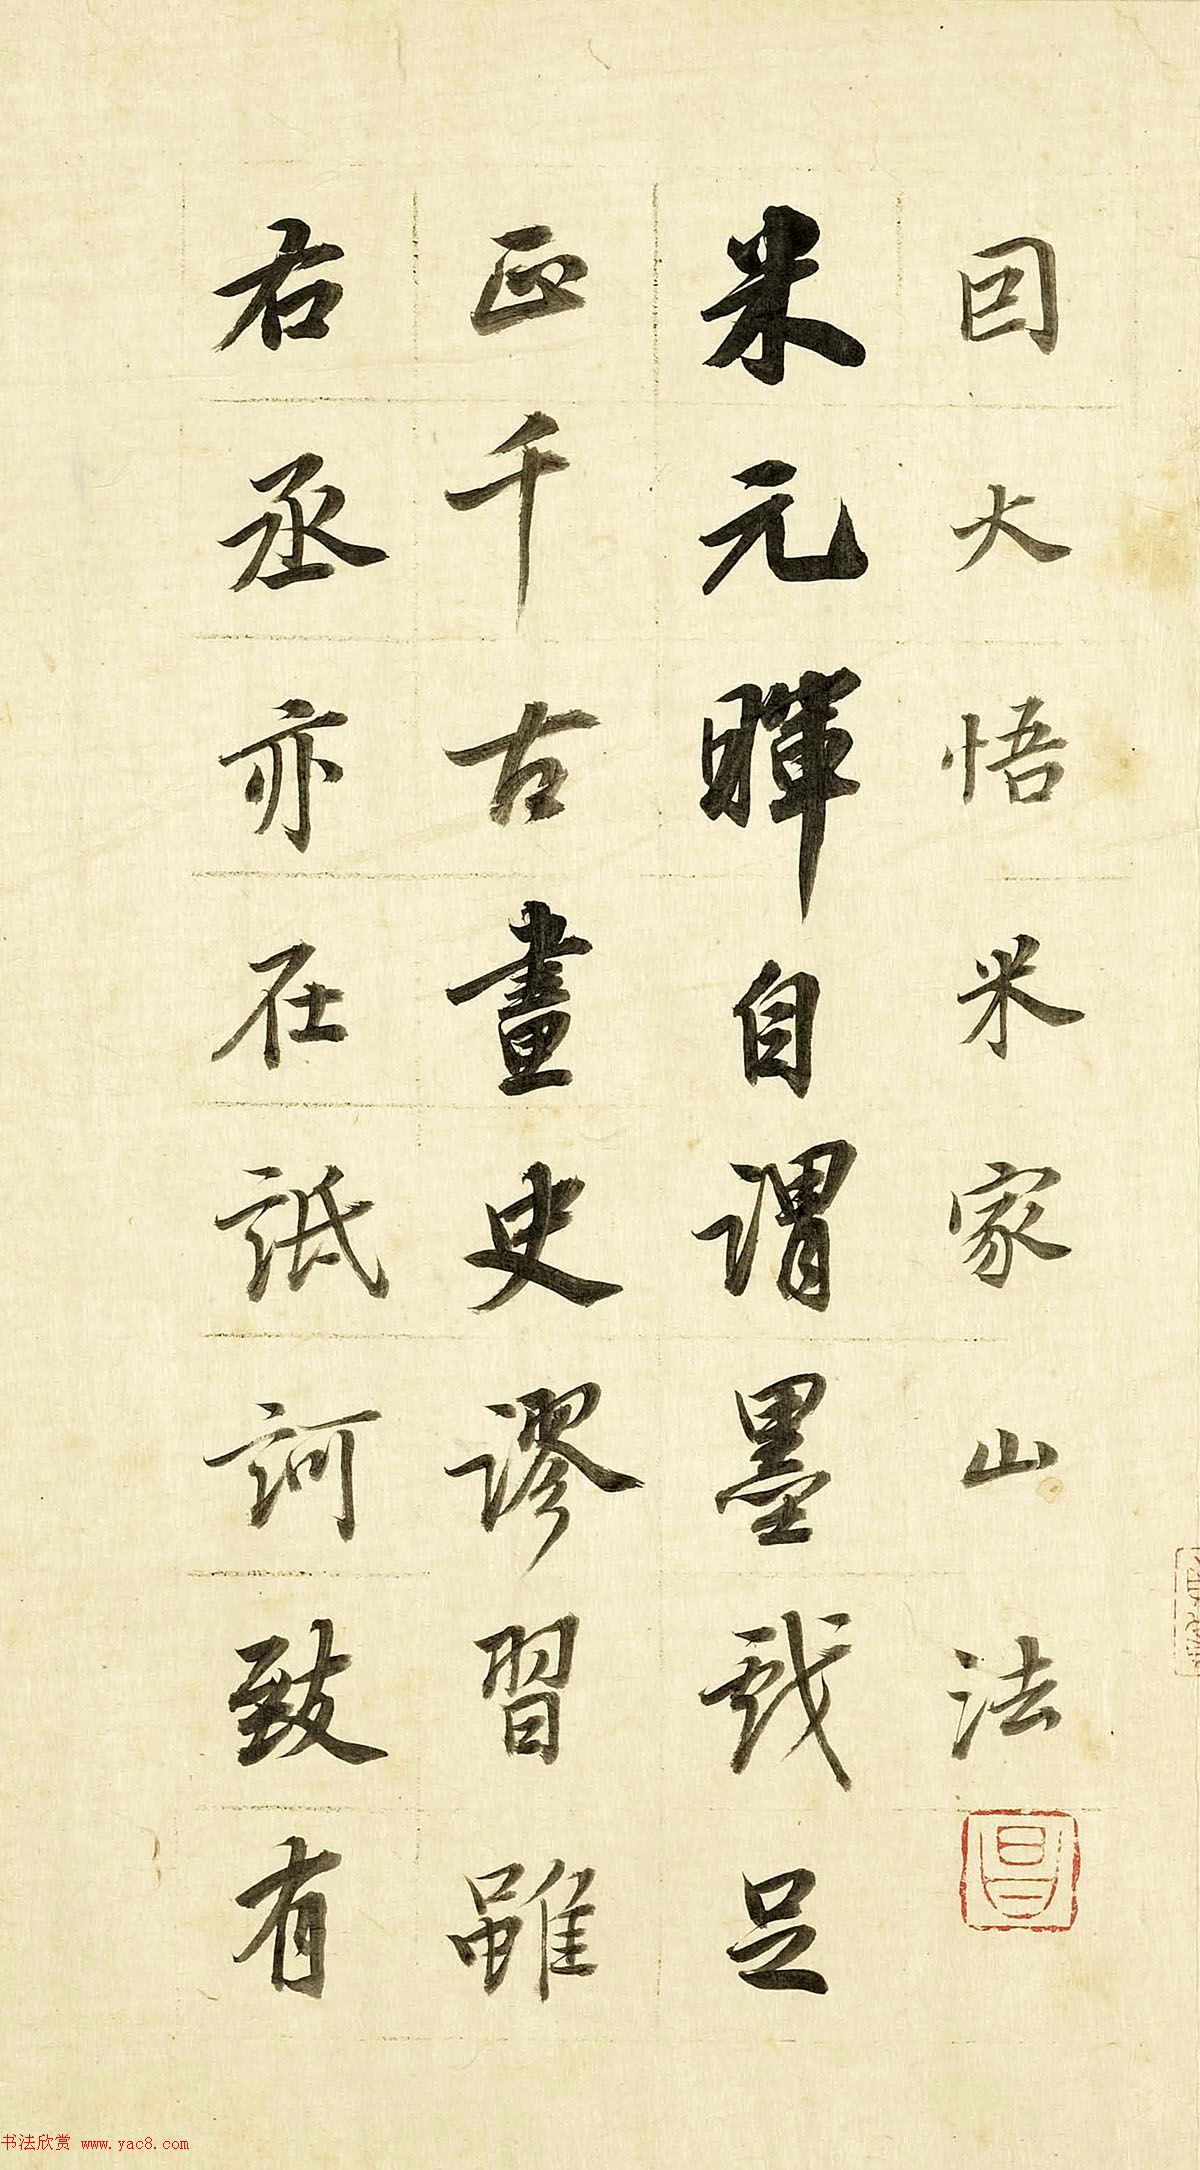 因大悟米家山法
米元暉自謂墨戲足
正千古畫史謬習雖
右丞亦在詆訶致有
昌
书法欣赏 www.yac8.com